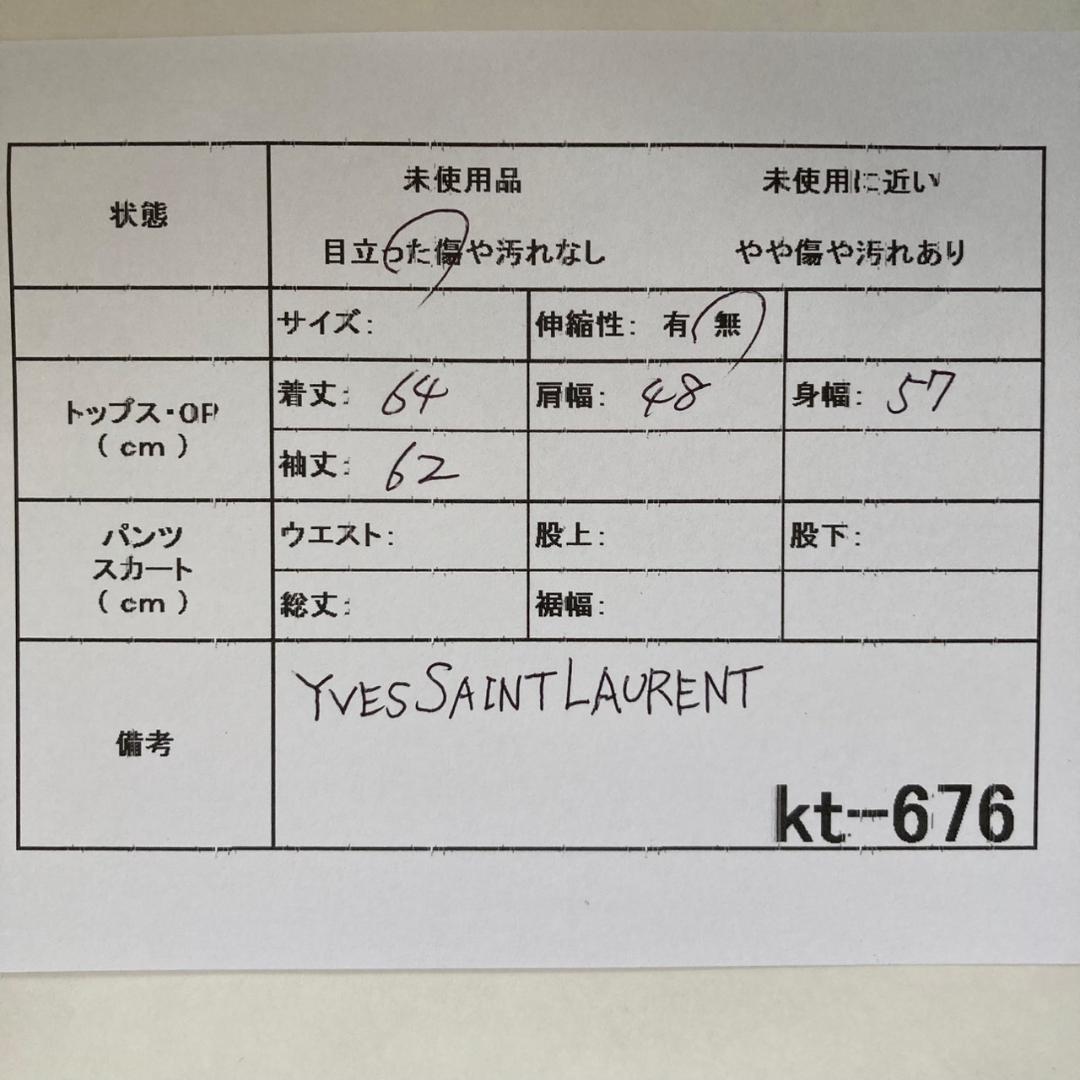 状態
未使用品 未使用に近い
目立った傷や汚れなし やや傷や汚れあり
サイズ: 伸縮性: 有 無
トップス・OP
( cm )
着丈: 64 肩幅: 48 身幅: 57
袖丈: 62
パンツ
スカート
( cm )
ウエスト: 股上: 股下:
総丈: 裾幅:
備考
YVES SAINT LAURENT
kt-676